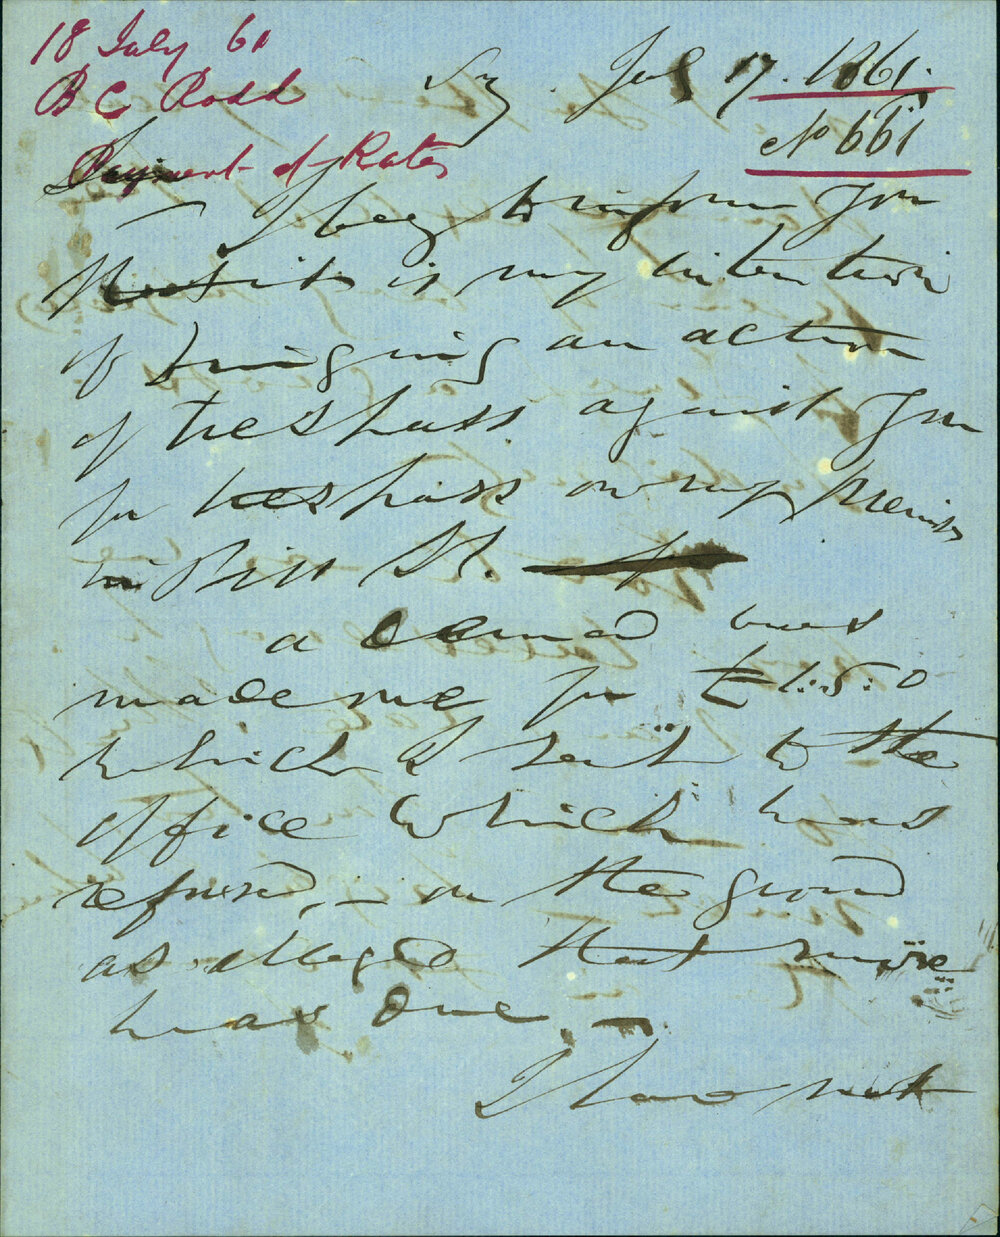 18 July 61
B C Rodd
Payment of Rates
Sy. July 17. 1861.
No 661
I beg to inform you
that it is my intention
of bringing an action
of trespass against you
for trespass on my premises
in Pitt St.
a demand was
made me for £1:5:0
which I sent to the
office which was
refused, – on the ground
as alleged that more
was due –
I have not